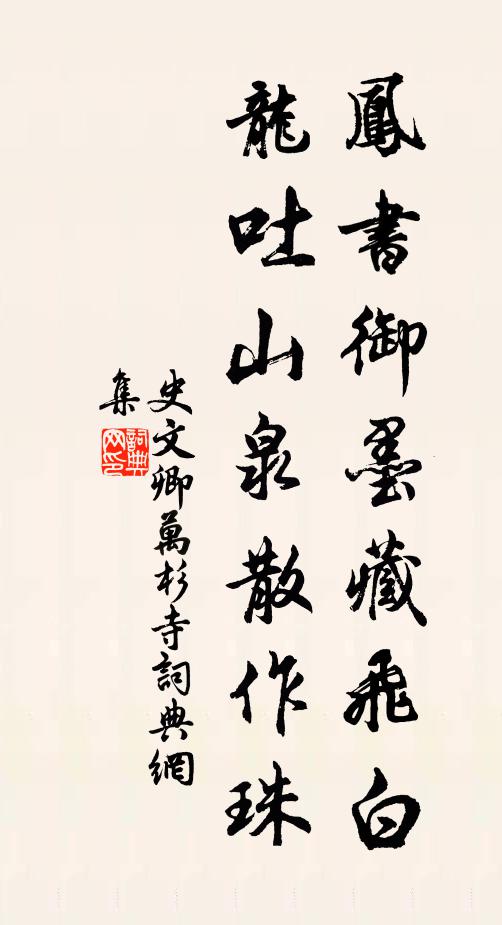 鳳書御墨藏飛白
龍吐山泉散作珠
史文卿萬杉寺詞典網
集
詞典網印